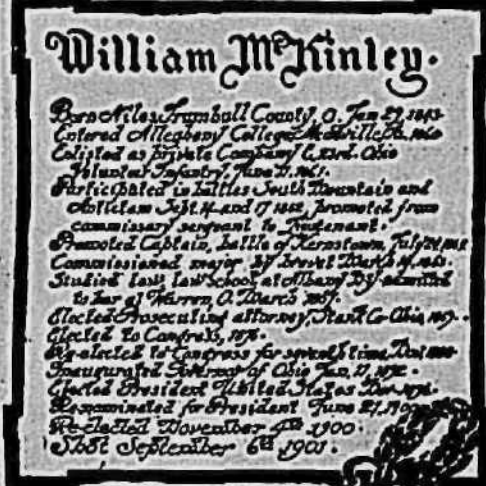 William McKinley.
Born Niles, Trumbull County, O. Jan 29, 1843
Entered Allegheny College, Meadville, Pa. 1860
Enlisted as private Company E, 23rd. Ohio
Volunteer Infantry, June 11, 1861.
Participated in battles South Mountain and
Antietam Sept. 14 and 17 1862, promoted from
commissary sergeant to lieutenant.
Promoted Captain, battle of Kernstown, July 24,
Commissioned major by brevet March
Studied law, law school at Albany N.Y. admitted
to bar at Warren, O. March 1867.
Elected Prosecuting attorney, Stark Co Ohio, 1869.
Elected to Congress, 1876.
Re-elected to Congress for time
Inaugurated Governor of Ohio Jan. 11, 1892.
Elected President United States Nov.
Renominated for President June 21, 1900
Re-elected November 4th 1900.
Shot September 6th 1901.